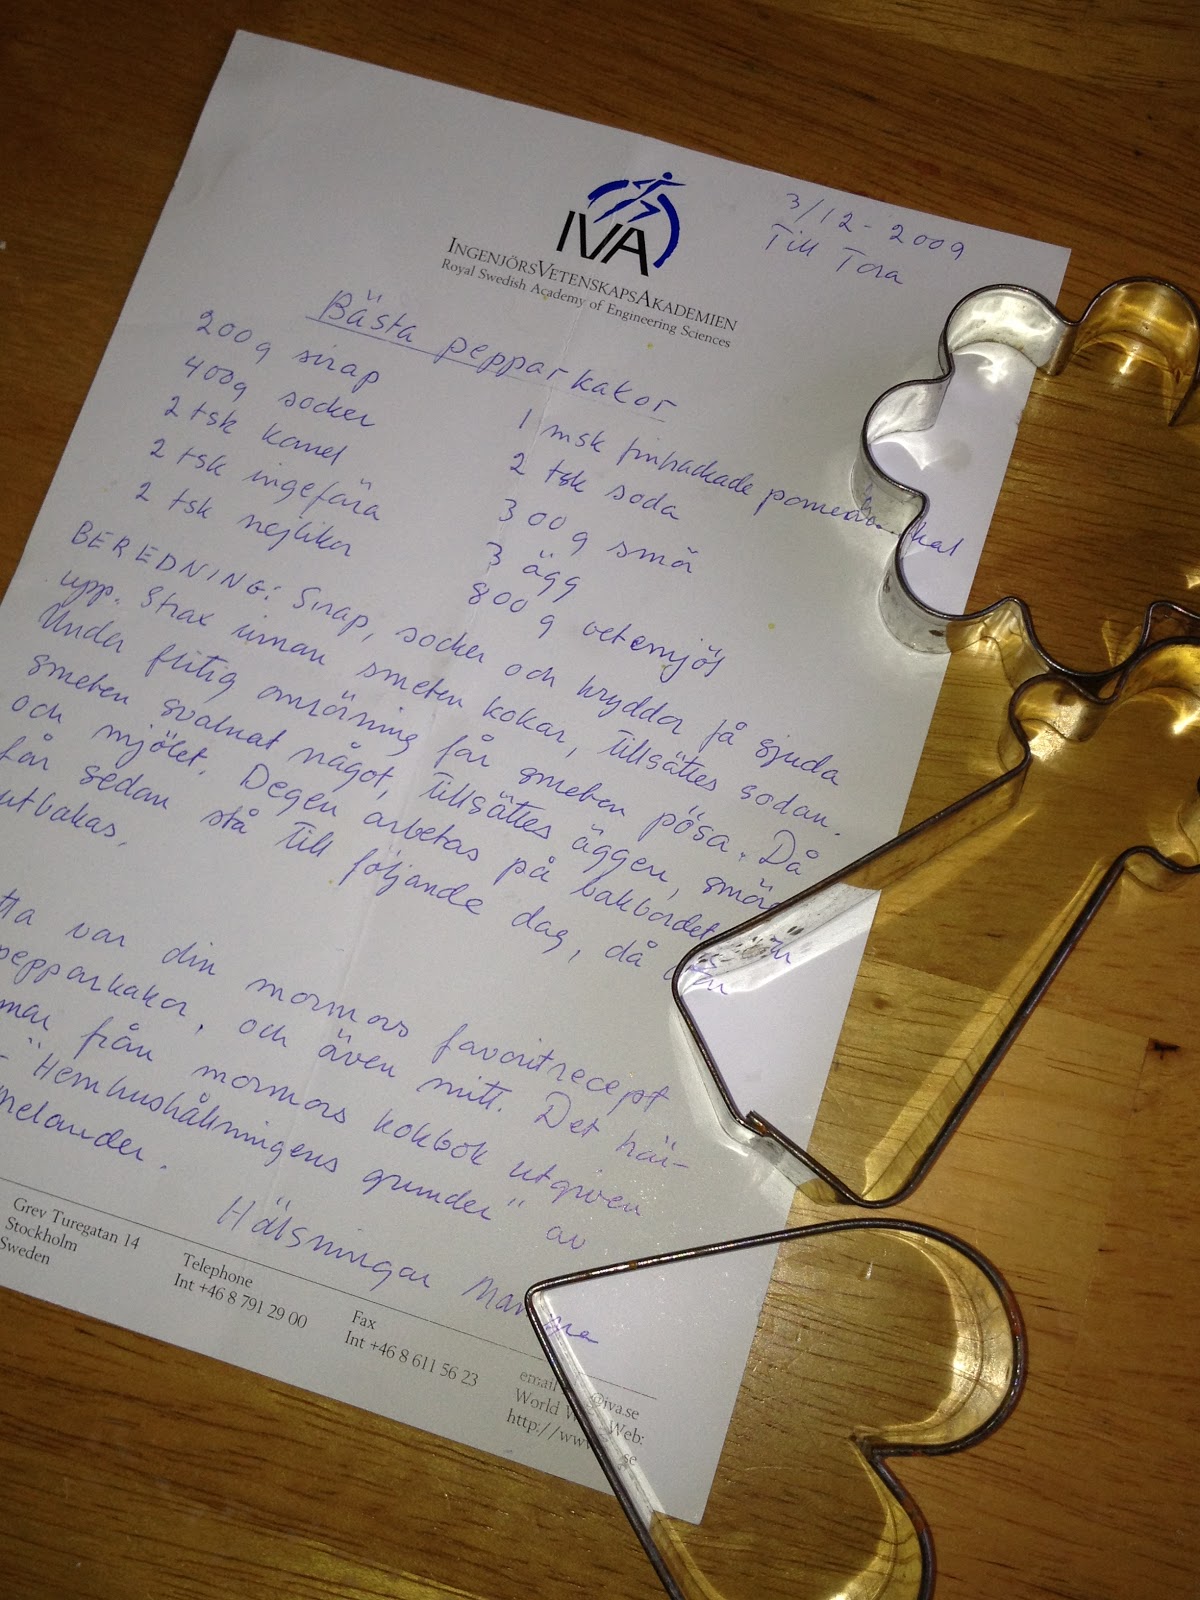 3/12-2009
Till Tora
IVA
INGENJÖRSVETENSKAPSAKADEMIEN
Royal Swedish Academy of Engineering Sciences
Bästa pepparkakor
200g sirap
400g socker
2 tsk kanel
2 tsk ingefära
2 tsk nejlikor
1 msk finhackade
2 tsk soda
300g smör
3 ägg
800 g vetemjöl
BEREDNING: Sirap, socker och kryddor få sjuda
upp. Strax innan smeten kokar, tillsättes sodan.
Under flitig omröring får smeten pösa. Då
smeten svalnat något, tillsättes äggen, smör
och mjölet. Degen arbetas på bakbordet
får sedan stå till följande dag, då den
utbakas.
tta var din mormors favoritrecept
pepparkakor, och även mitt. Det här-
mar från mormors kokbok utgiven
"Hemhushållningens grunder" av
melander.
Hälsningar
Grev Turegatan 14
Stockholm
Sweden
Telephone
Int +46 8 791 29 00
Fax
Int +46 8 611 56 23
email @iva.se
World W Web:
http://www se